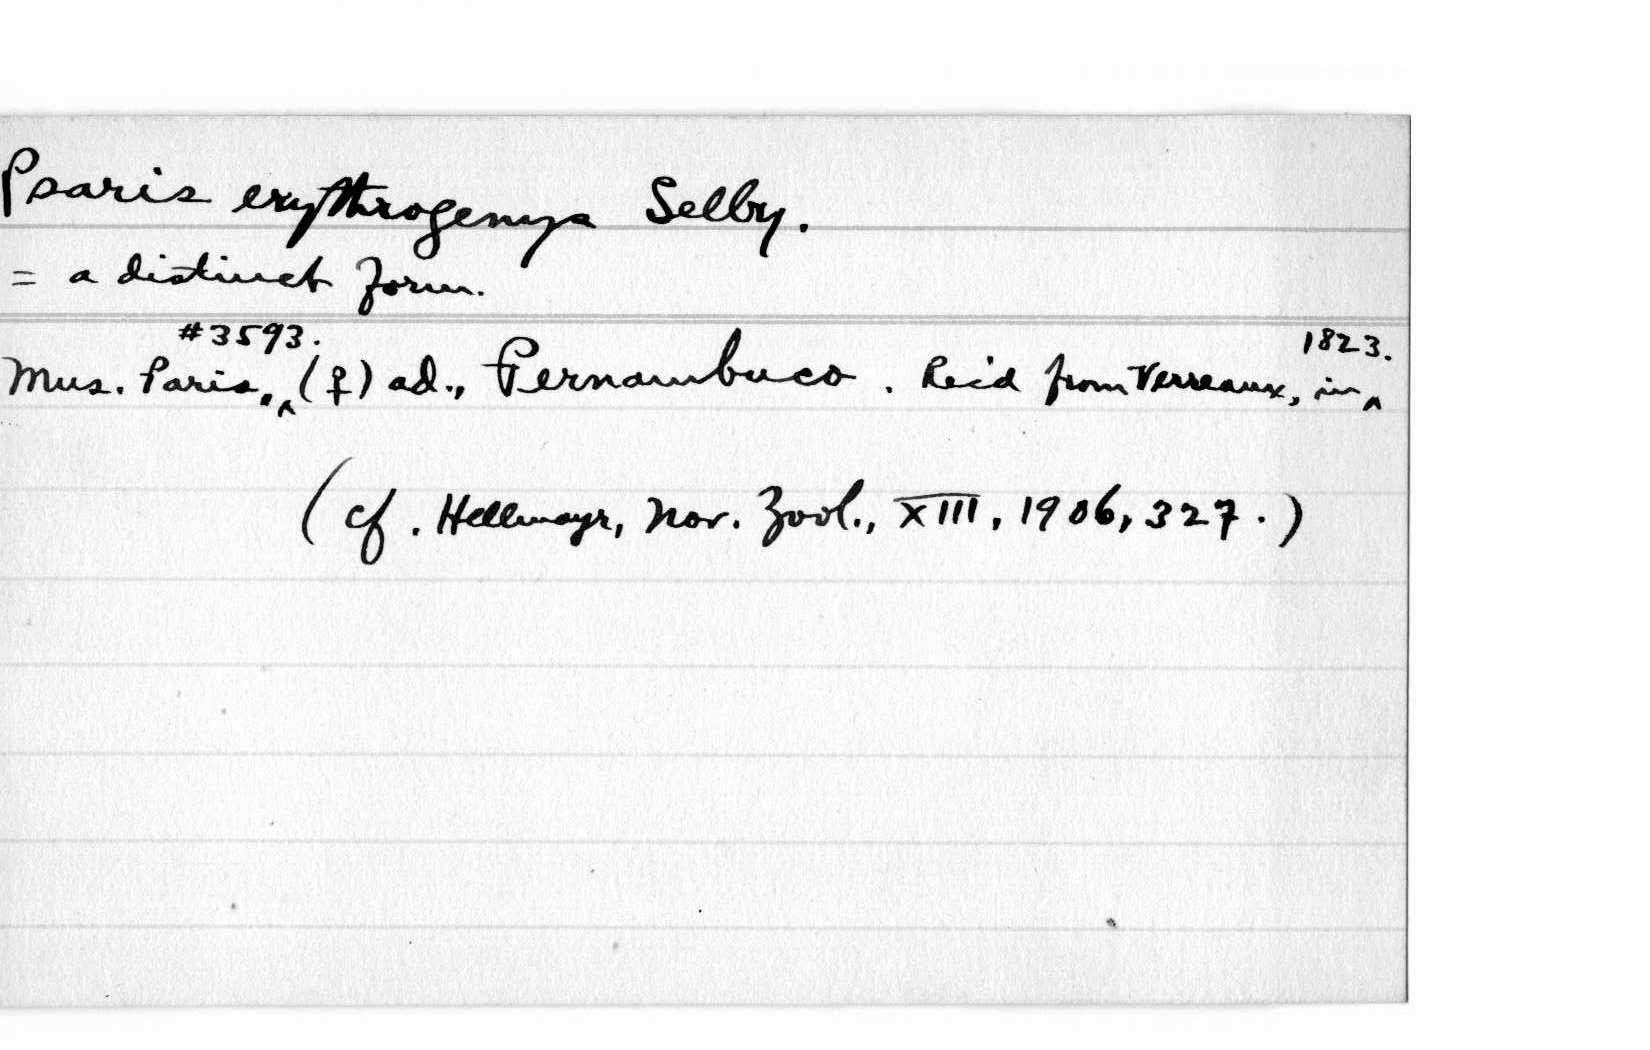 Psaris erythrogenys Selby.
= a distinct form.
Mus. Paris., #3593. (♀) ad., Pernambuco. Rec'd from Verreaux, in 1823.
(cf. Hellmayr, Nov. Zool., XIII, 1906, 327.)